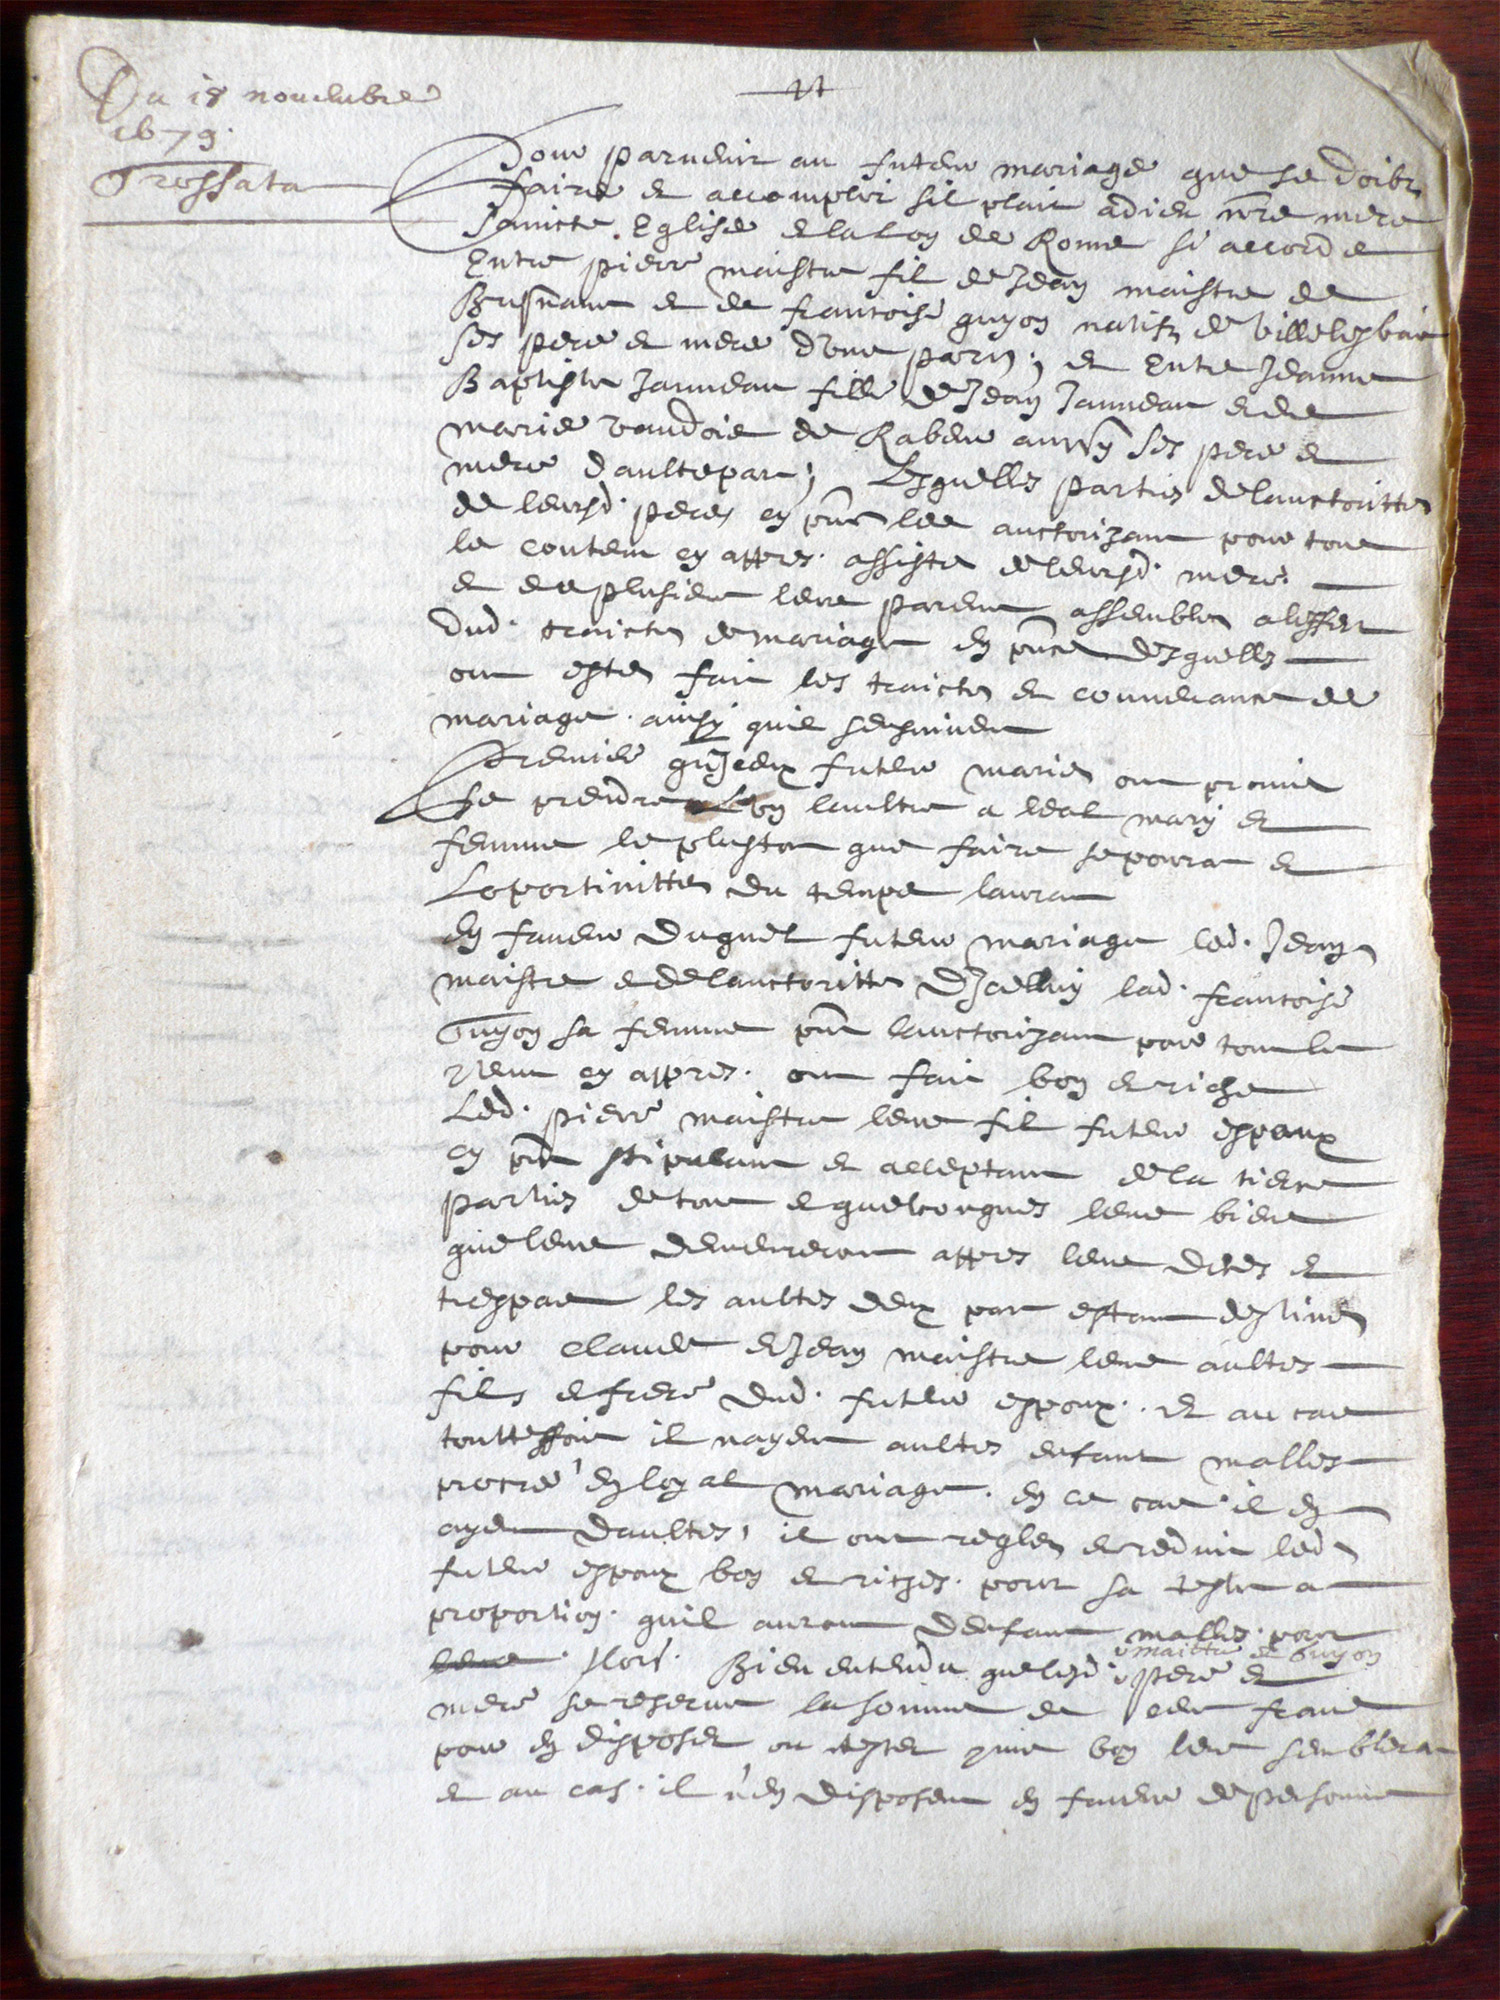 Du 18 novembre
1679.
Grossata
Pour parvenir au futeur mariage que se doibt
faire et accomplir sil plait a dieu nre mere
saincte Eglise et la loy de Rome si accorde
Entre pierre maistre fil de Jean maistre de
et de francoise guyon natifz de
ses pere et mere dune part, et Entre Jeanne
Baptiste Janneau fille de Jean Janneau et de
marie de aussy ses pere et
mere daultepart, Lesquelles parties de lauctoritte
de leursd. peres cy pnt les auctorizant pour tout
le contenu cy appres. assiste de leursd. meres
et de plusieurs leurs parents assembles a leffect
dud. traicte de mariage En pnce desquells
ont estes fait les traictes et convenances de
mariage. ainsy quil sensuivent
Premier quiceux futeur maries ont promis
se prendre Lung laultre a leal mary et
femme le plustot que faire se poura et
Loportunitte du temps laura
En faveur duquel futeur mariage led. Jean
maistre et de lauctoritte dicelluy lad. francoise
Guyon sa femme pnt lauctorizant pour tout le
cy appres. ont fait bon et riche
Led. pierre maistre leur fil futeur espoux
cy pnt stipulant et acceptant de la tierce
parties de tous et quelconques leurs biens
que leurs appres leurs deces et
trespas les aultes deux part estant destines
pour claude et Jean maistre leurs aultes
fils et frere dud. futeur espoux. et au cas
touttesfois il nayent aultes enfant malles
procree En loyal mariage. En ce cas il En
ayent daultes, il ont regles et reduit led.
futeur espoux bon et riches. pour sa teste a
proportion quil auront denfant malles. pour
lors. Bien entendu que lesd. pere et
maistre et Guyon
mere se reserve la somme de cent francs
pour En disposer ou tester bon leur semblera
et au cas. il nen disposent En faveur de personne